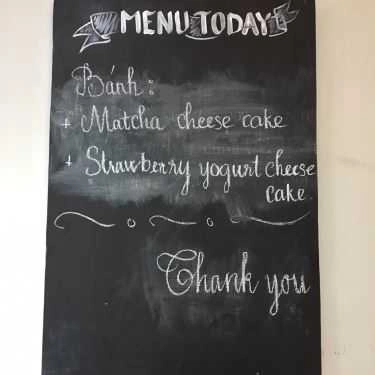 MENU TODAY
Bánh:
+ Matcha cheese cake
+ Strawberry yogurt cheese
cake.
Thank you